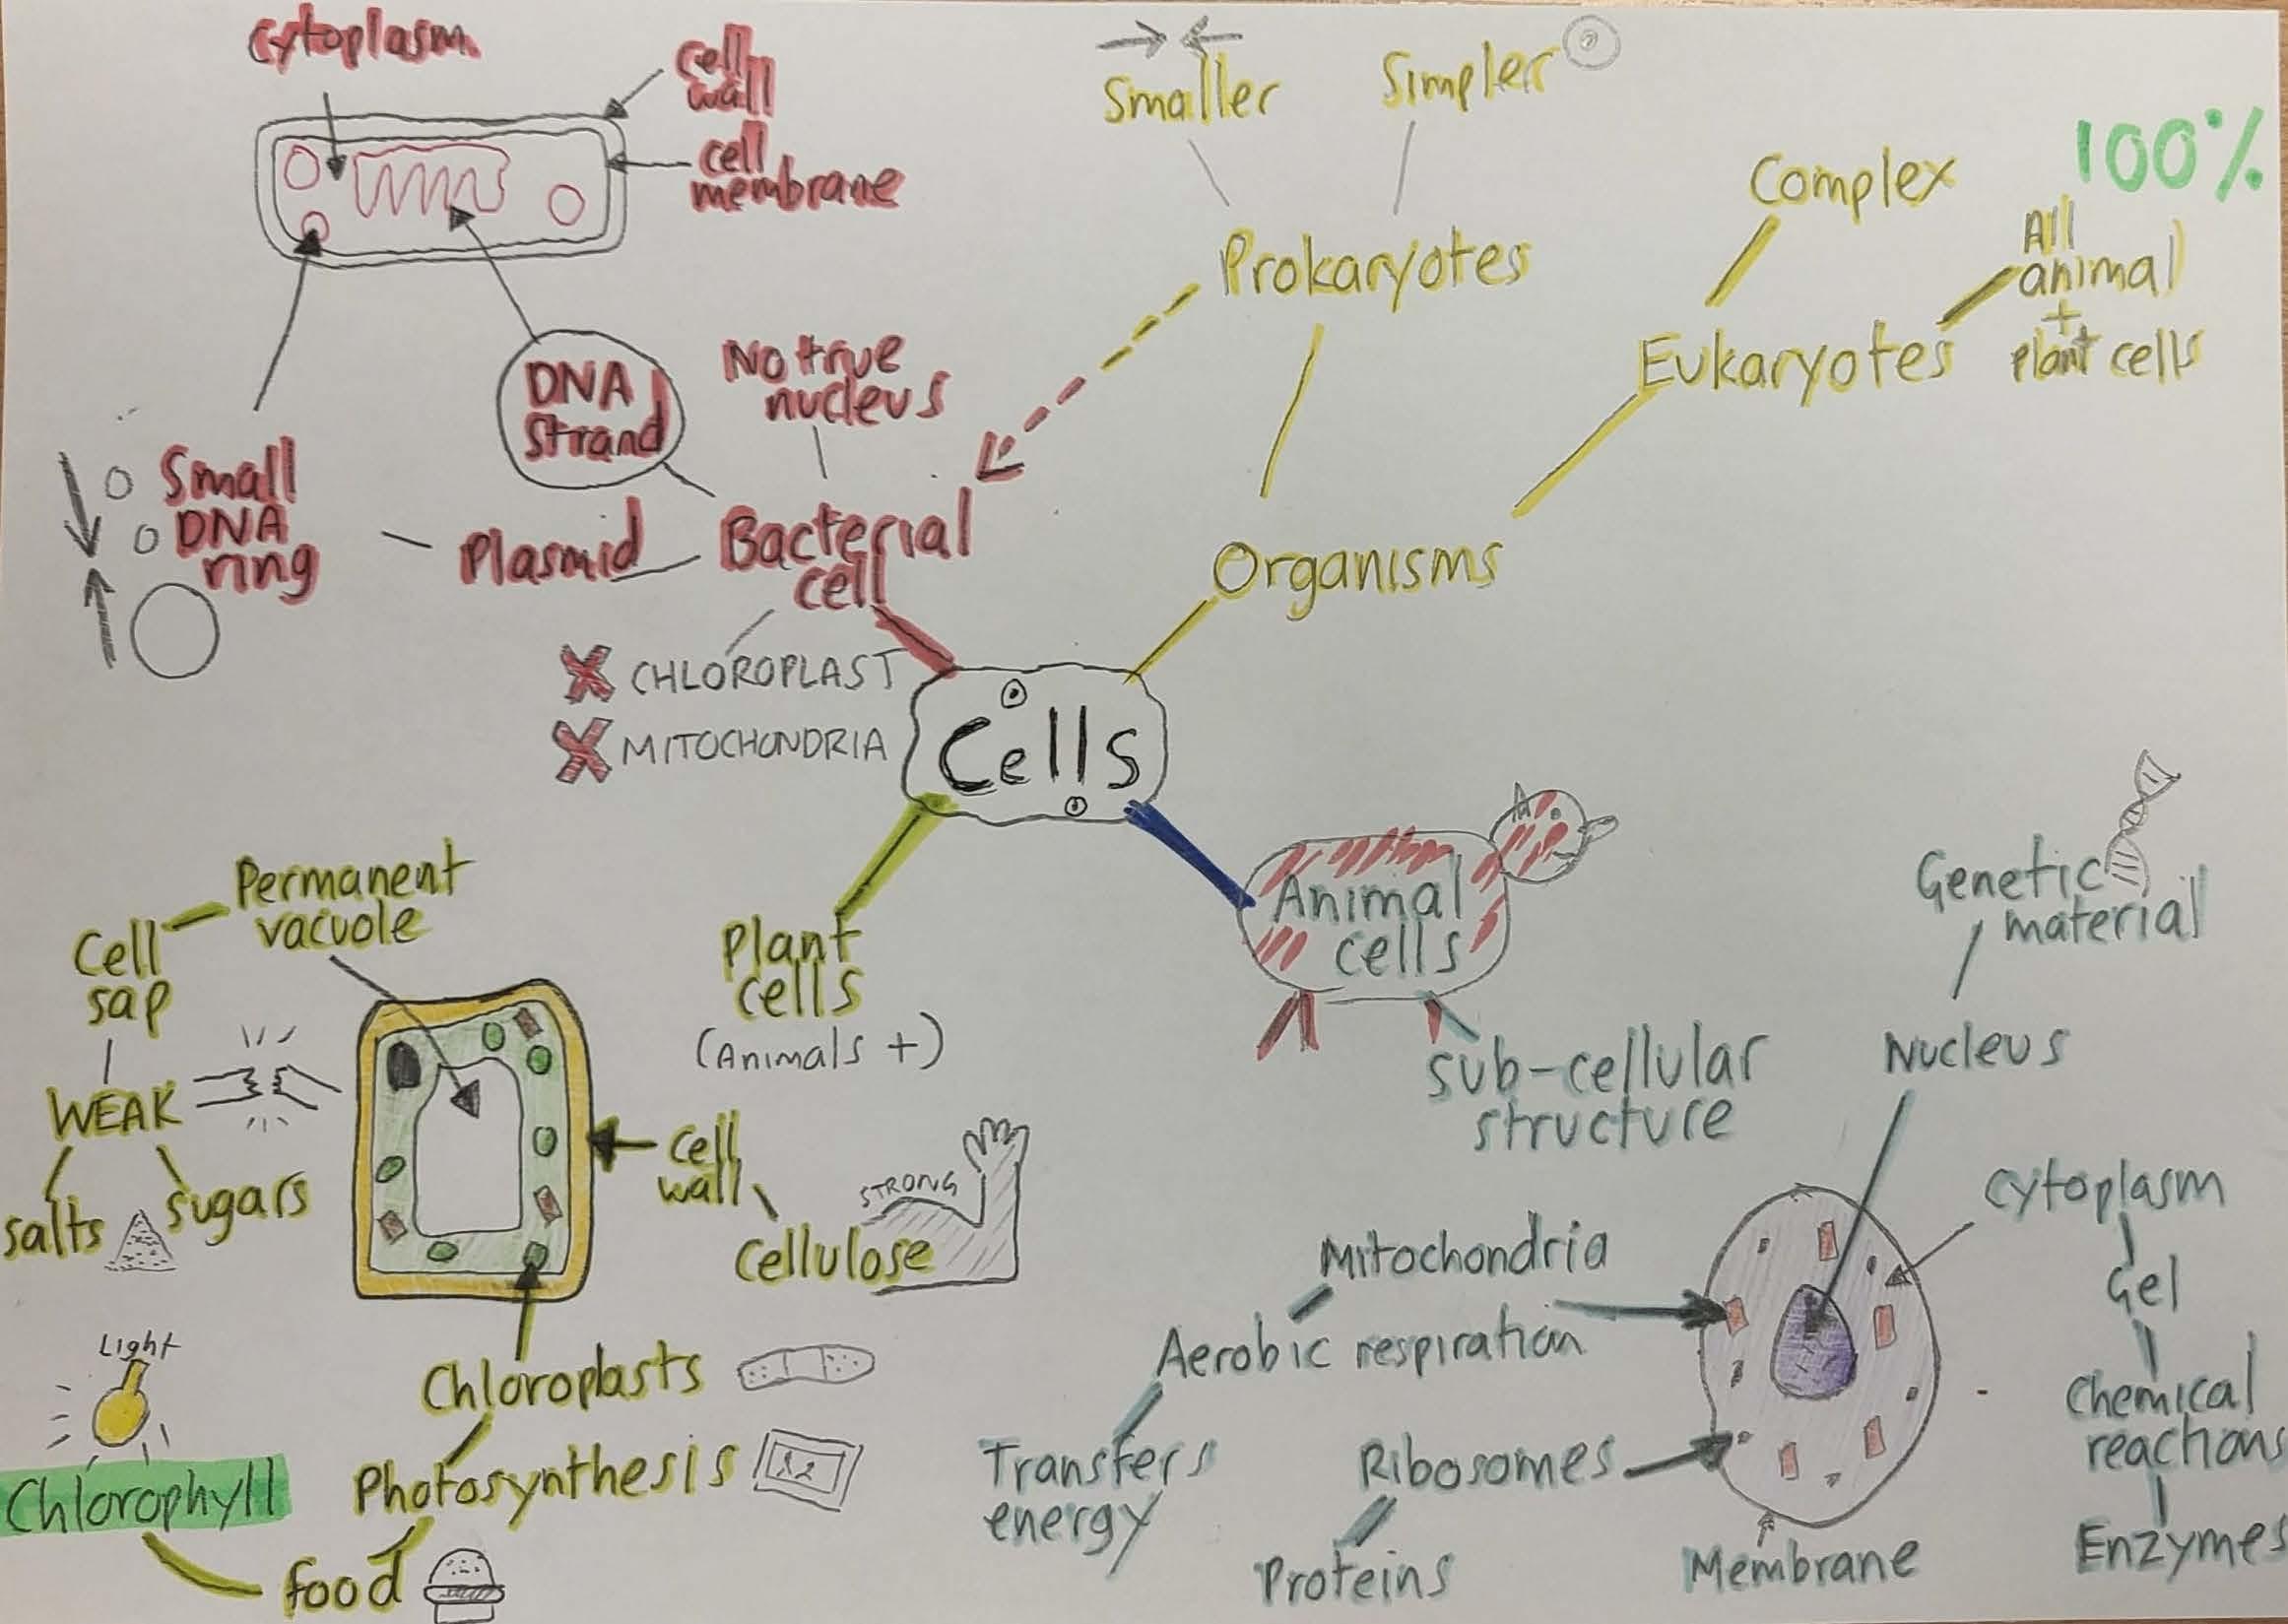 Cytoplasm
cell
wall
cell
membrane
DNA
Strand
No true
nucleus
Small
DNA
ring
Plasmid
Bacterial
cell
CHLOROPLAST
MITOCHONDRIA
Smaller
Simpler
Prokaryotes
Complex
100%
All
animal
+
plant cells
Eukaryotes
Organisms
Cells
Permanent
vacuole
Cell
sap
WEAK
salts
sugars
Plant
cells
(Animals +)
cell
wall
STRONG
cellulose
Light
Chloroplasts
Photosynthesis
Chlorophyll
food
Animal
cells
sub-cellular
structure
Genetic
material
Nucleus
Cytoplasm
Gel
Chemical
reactions
Enzymes
Mitochondria
Aerobic respiration
Transfers
energy
Ribosomes
Proteins
Membrane